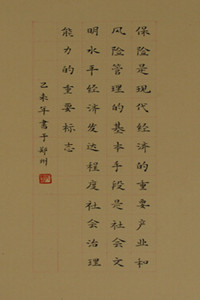 保险是现代经济的重要产业和
风险管理的基本手段是社会文
明水平经济发达程度社会治理
能力的重要标志
己未年书于郑州